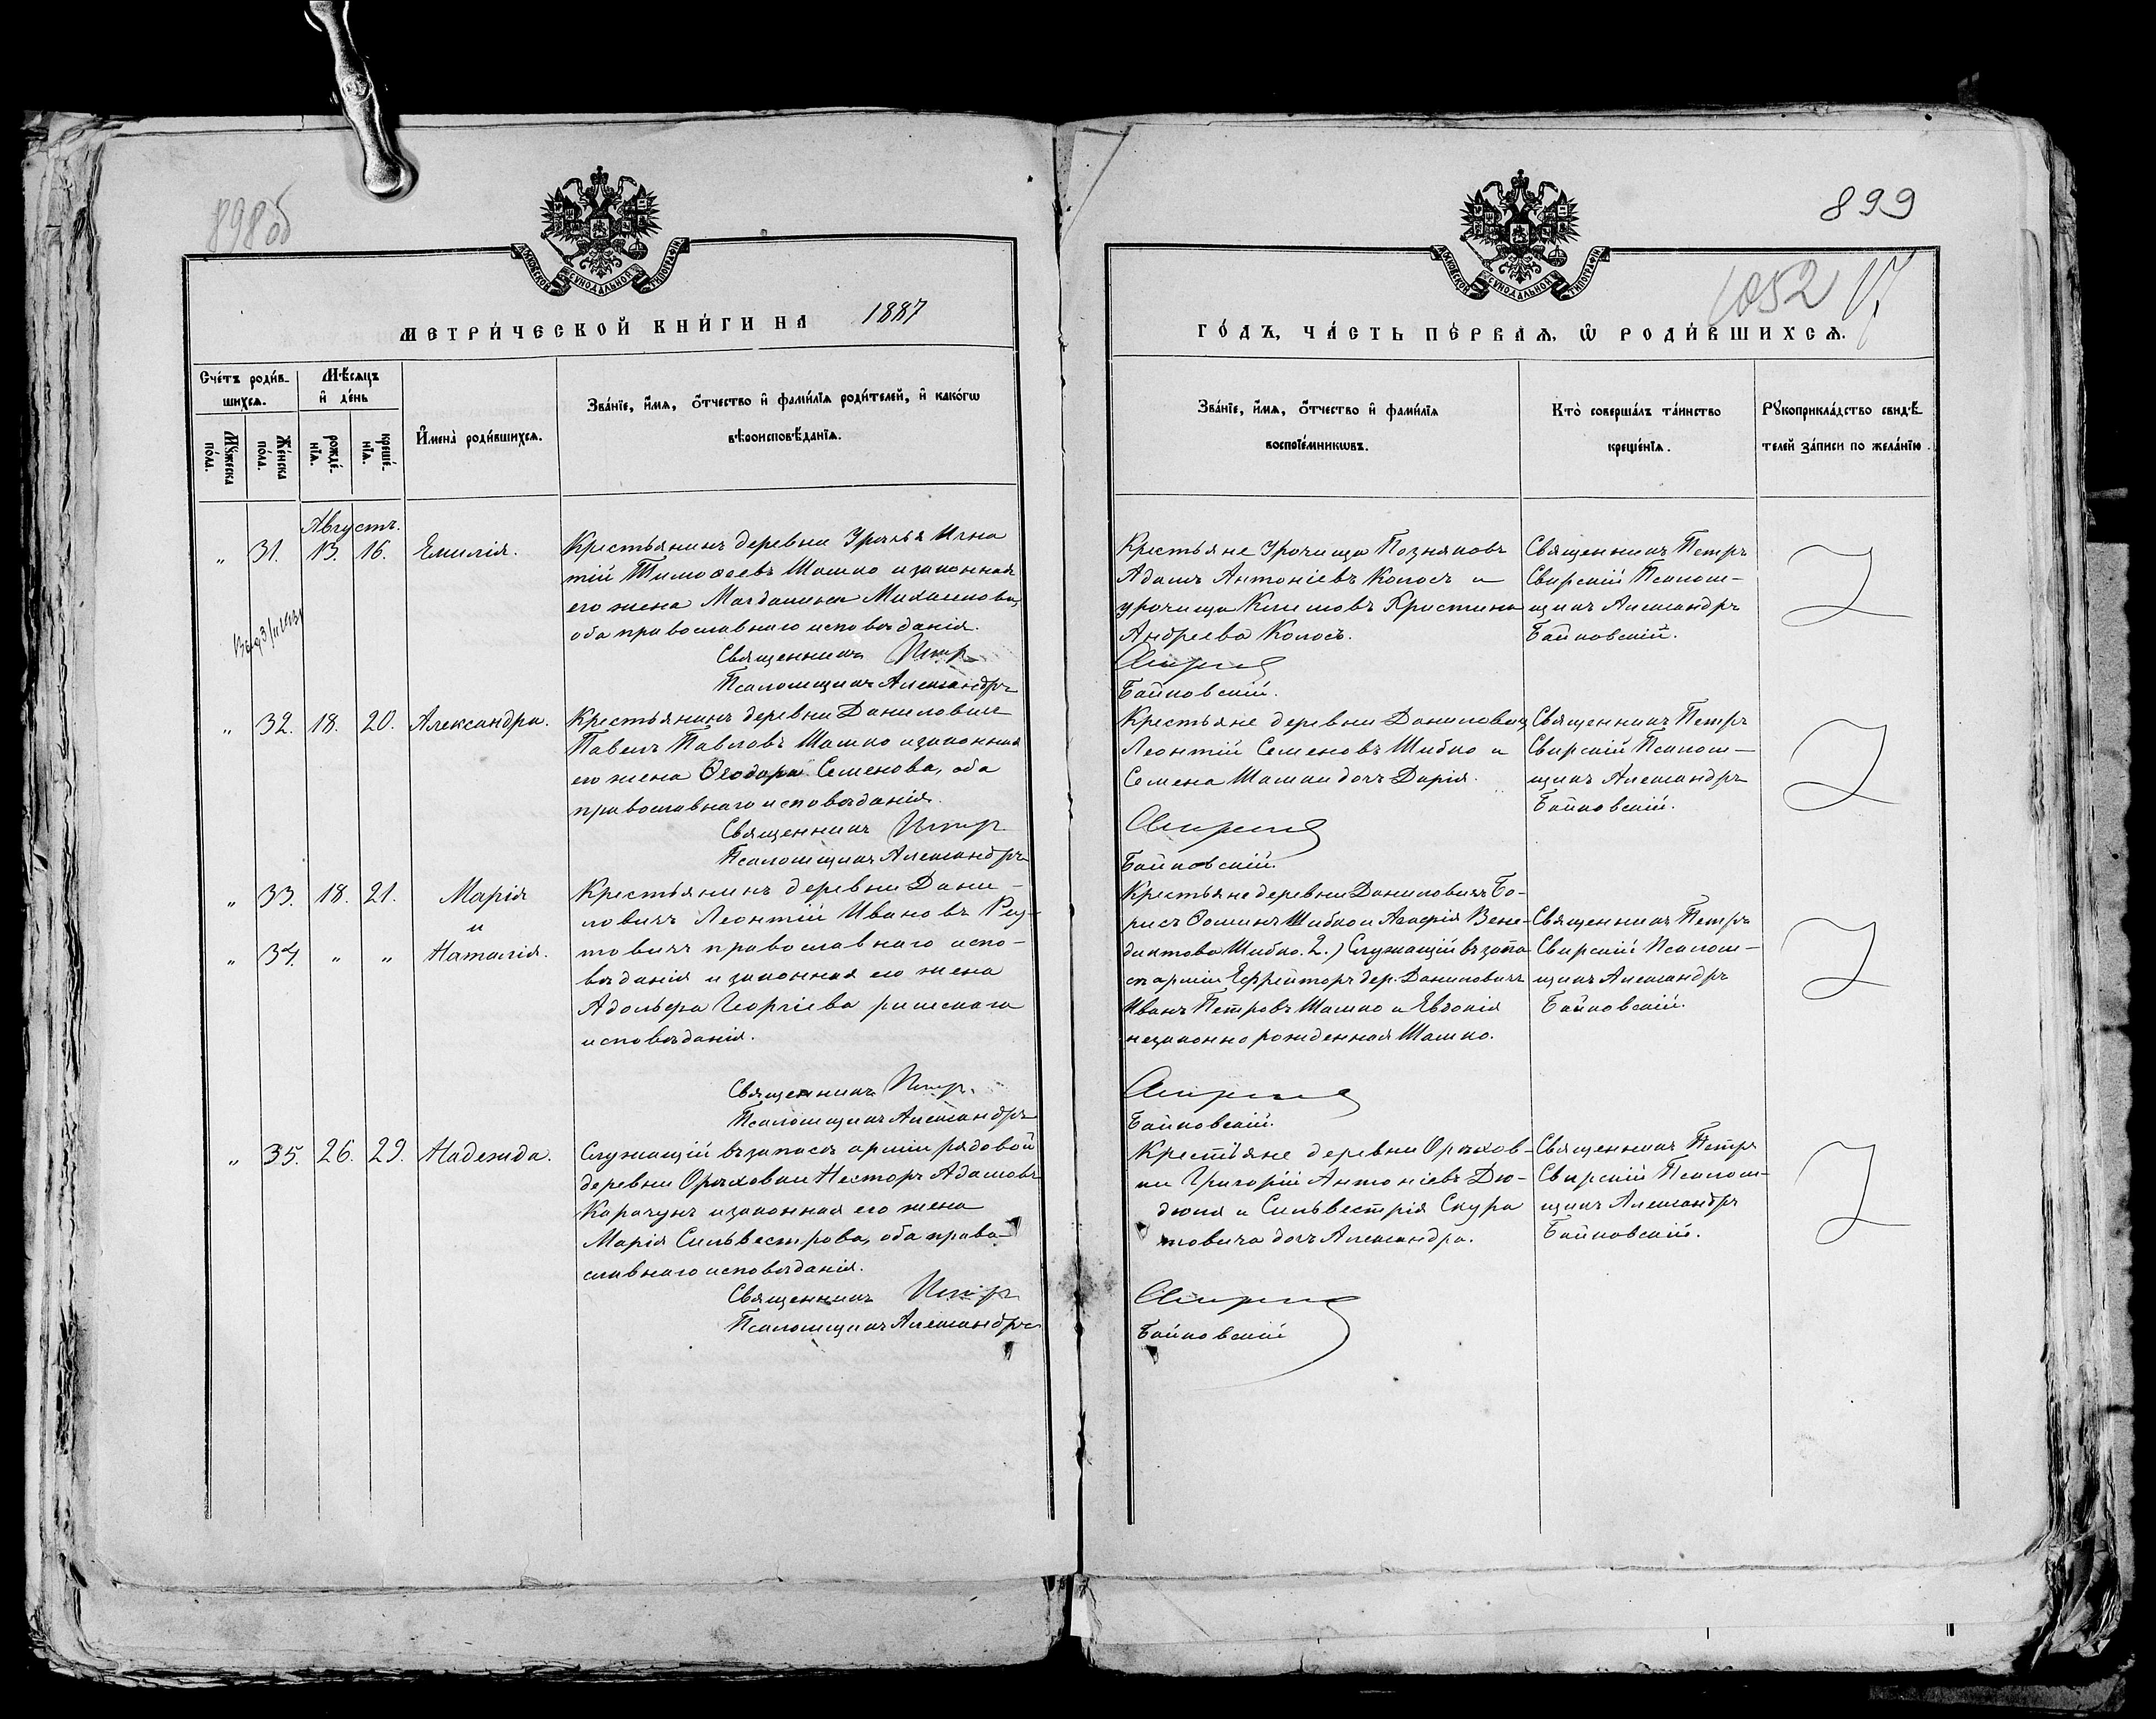 898об
МОСКОВСКОЙ СѴНОДАЛЬНОЙ ТИПОГРАФІИ
МЕТРИ́ЧЕСКОЙ КНИ́ГИ НА 1887
Сче́тъ роди́в-
шихсѧ.
Мѣ́сѧцъ
и҆ де́нь
Мꙋ́жеска
по́ла.
Же́нска
по́ла.
рожде́-
нїѧ.
креще́-
нїѧ.
И҆мена̀ роди́вшихсѧ.
Зва́нїе, и҆́мѧ, ѻ҆́тчество и҆ фами́лїѧ роди́телей, и҆ како́гѡ
вѣроисповѣ́данїѧ.
Августъ.
„ 31. 13. 16. Емилія.
Крестьянинъ деревни Уречья Игна
тій Тимоѳеевъ Шашко и законная
его жена Магдалина Михаилова,
оба православнаго исповѣданія.
Священникъ Петр
Псаломщикъ Александръ
„ 32. 18. 20. Александра.
Крестьянинъ деревни Даниловичъ
Павелъ Павловъ Шашко и законная
его жена Ѳеодора Семенова, оба
православнаго исповѣданія.
Священникъ Петр
Псаломщикъ Александръ
„ 33. 18. 21. Марія
и
„ 34. „ „ Наталія.
Крестьянинъ деревни Дани-
ловичъ Леонтій Ивановъ Реу-
товичъ православнаго испо-
вѣданія и законная его жена
Адольфа Георгіева римскаго
исповѣданія.
Священникъ Петр
Псаломщикъ Александръ
„ 35. 26. 29. Надежда.
Служащій въ запасѣ арміи рядовой
деревни Орѣховки Несторъ Адамовъ
Карачунъ и законная его жена
Марія Сильвестрова, оба право-
славнаго исповѣданія.
Священникъ Петр
Псаломщикъ Александръ
899
1052
МОСКОВСКОЙ СѴНОДАЛЬНОЙ ТИПОГРАФІИ
ГО́ДЪ, ЧА́СТЬ ПЕ́РВАѦ, Ѡ҆ РОДИ́ВШИХСѦ.
Зва́нїе, и҆́мѧ, ѻ҆́тчество и҆ фами́лїѧ
воспрїе́мникѡвъ.
Кто̀ соверша́лъ та́инство
креще́нїѧ.
Рꙋкоприкла́дство свидѣ́-
телей за́писи по жела́нїю.
Крестьяне урочища Позняковъ
Адамъ Антоніевъ Колосъ и
урочища Климовъ Христина
Андреева Колосъ.
Свирскій
Байковскій.
Священникъ Петръ
Свирскій Псалом-
щикъ Александръ
Байковскій.
Крестьяне деревни Даниловичъ
Леонтій Семеновъ Шибко и
Семена Шашки дочь Дарія.
Свирскій
Байковскій.
Священникъ Петръ
Свирскій Псалом-
щикъ Александръ
Байковскій.
Крестьяне деревни Даниловичъ Бо-
рисъ Ѳоминъ Шибко и Агафія Вене-
диктова Шибко. 2.) Служащій въ запа
сѣ арміи Ефрейторъ дер. Даниловичъ
Иванъ Петровъ Шашко и Евдокія
незаконно рожденная Шашко.
Свирскій
Байковскій.
Священникъ Петръ
Свирскій Псалом-
щикъ Александръ
Байковскій.
Крестьяне деревни Орѣхов-
ки Григорій Антоніевъ Дю-
дюля и Сильвестрія Скура
товича дочь Александра.
Свирскій
Байковскій
Священникъ Петръ
Свирскій Псалом-
щикъ Александръ
Байковскій.